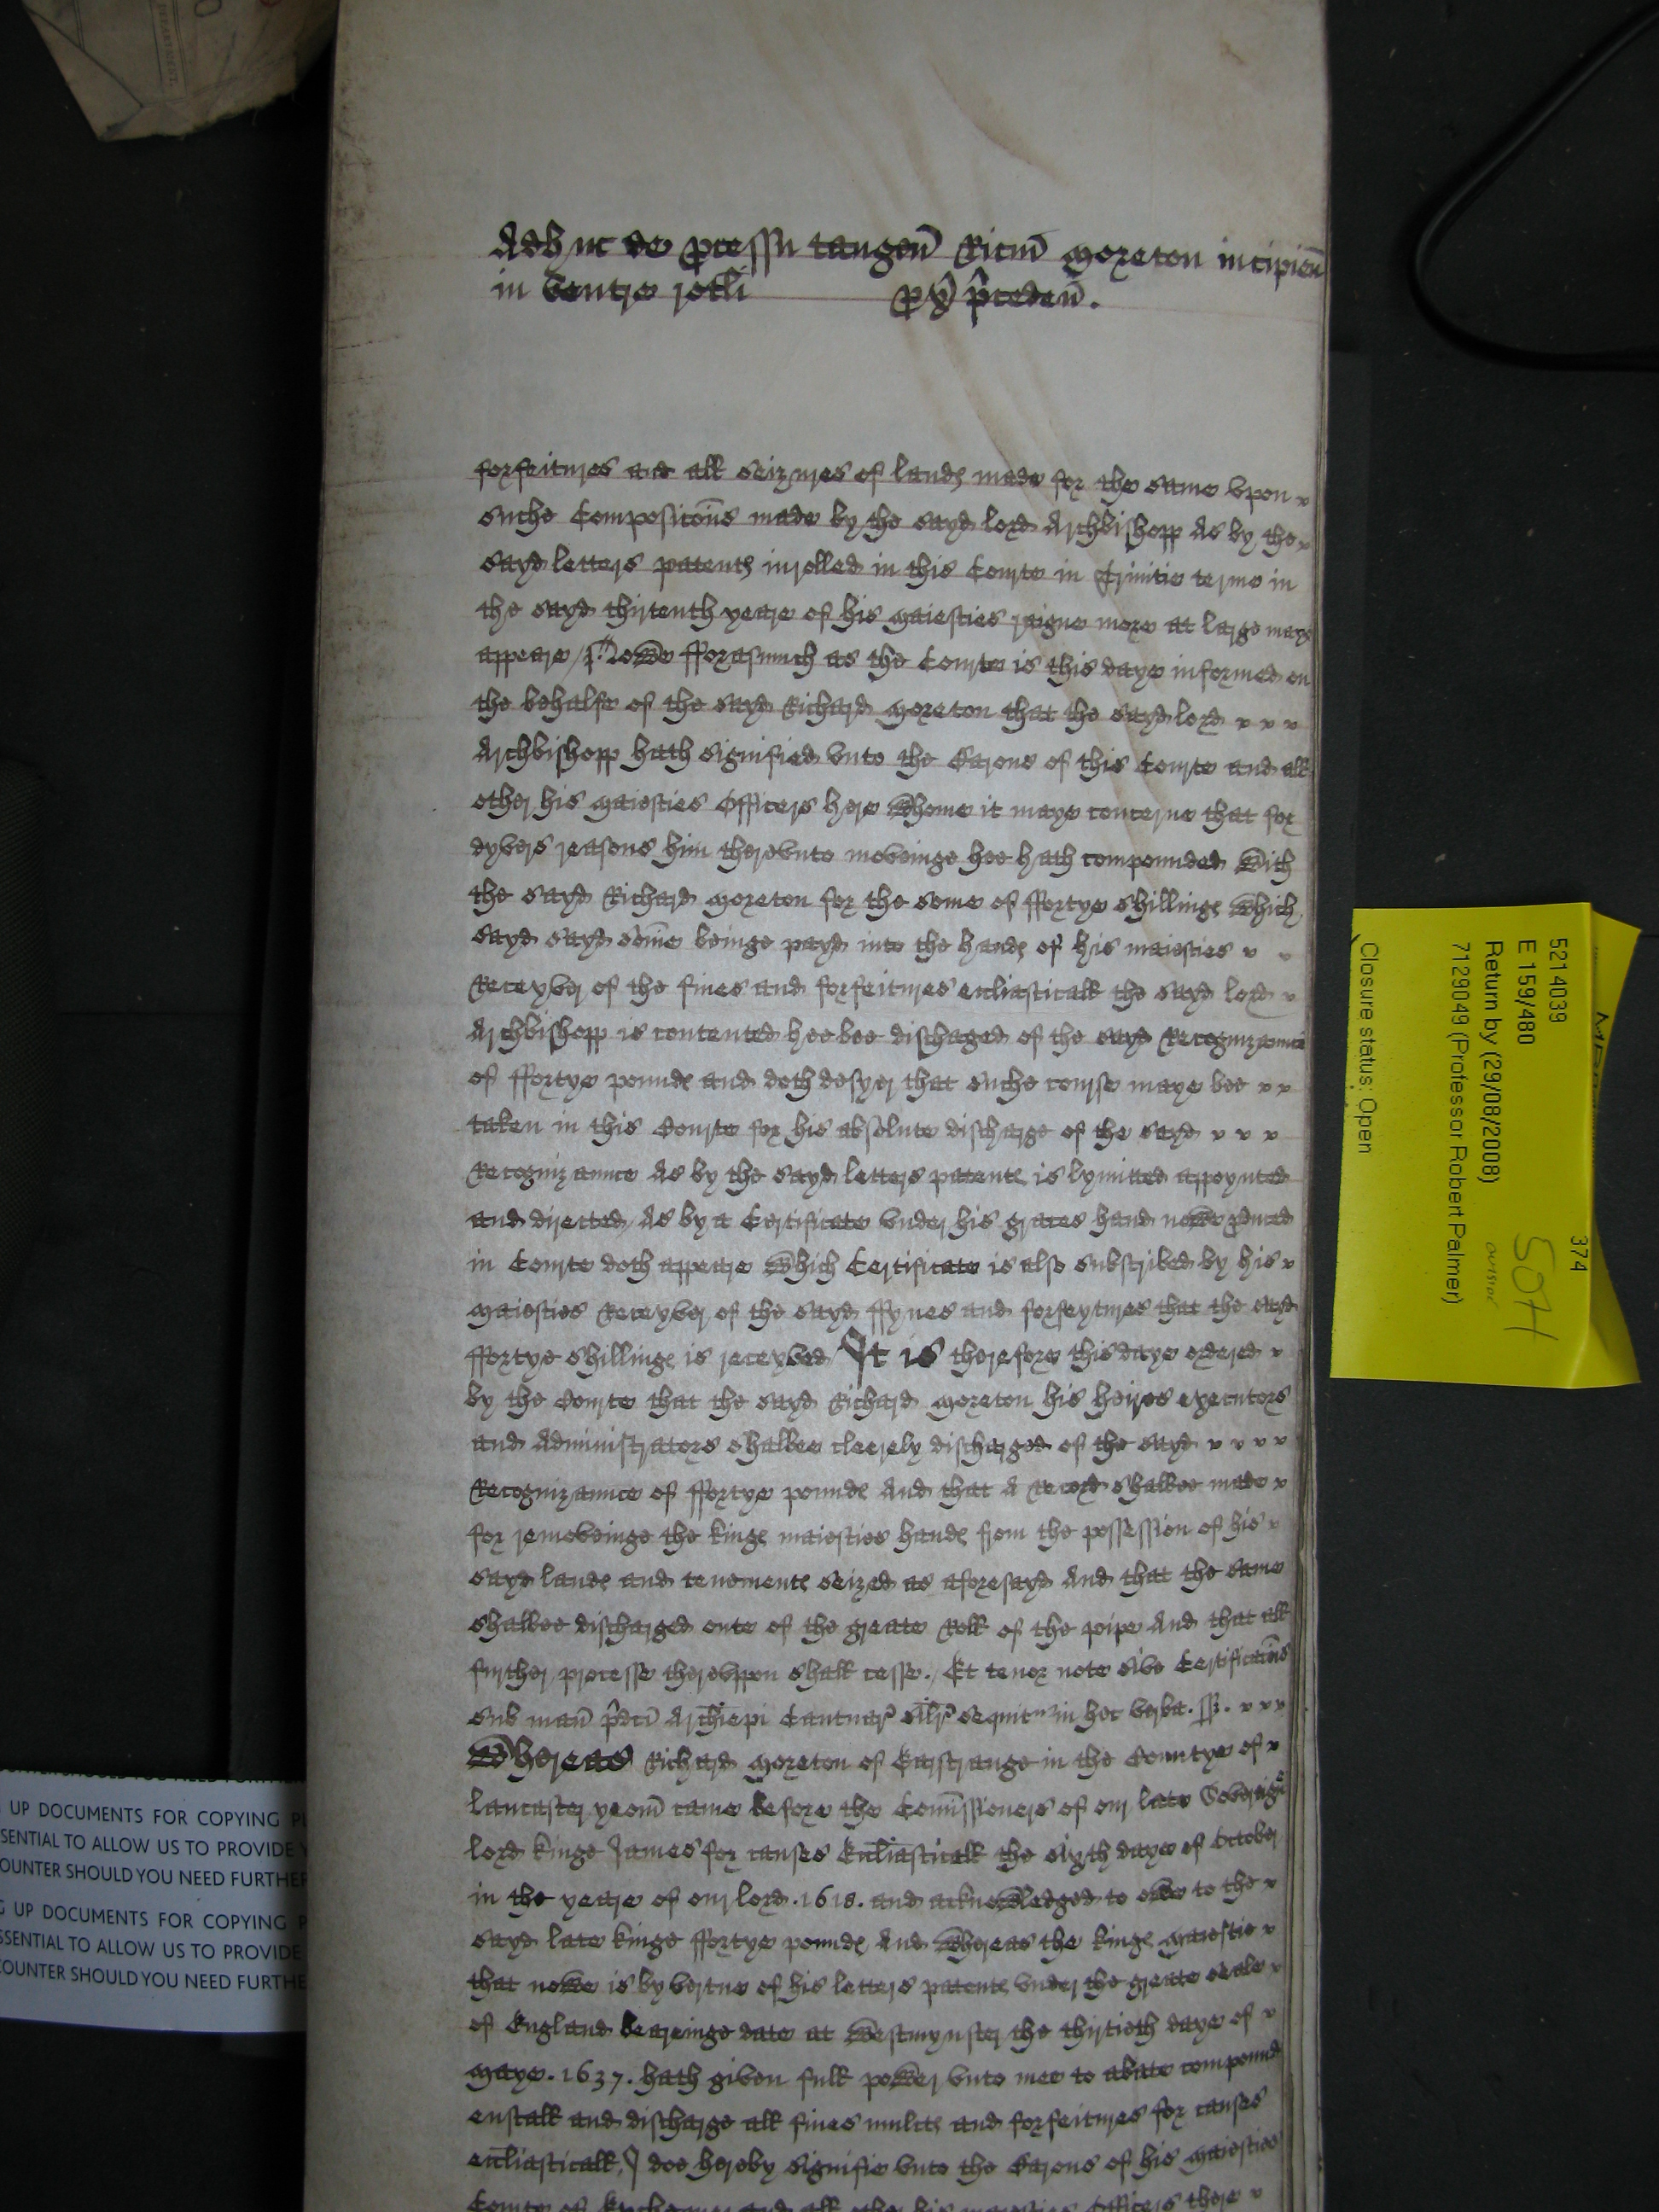 Adhuc de p̱cessu tangeñ Ricm̄ Moreton incipieñ
in ventre rotli p̱x̄ p̄ceden̄.
forfeitures and all seizures of landes made for the same vpon
suche Composicōns made by the sayd lord Archbishopp As by the
sayd letters patents inrolled in this Courte in Trinitie terme in
the sayd thirtenth yeare of his Maiesties raigne more at large maye
appeare / Nowe fforasmuch as the Courte is this daye informed on
the behalfe of the sayd Richard Moreton that the sayd lord
Archbishopp hath signified vnto the Barons of this Courte and all
other his Maiesties Officers here whome it maye concerne that for
dyvers reasons him therevnto moveinge hee hath compounded with
the sayd Richard Moreton for the some of ffortye shillinges which
sayd sayd som̄e beinge payd into the handes of his maiesties
Receyver of the fines and forfeitures eccliasticall the sayd lord
Archbishopp is contented hee bee dischaged of the sayd Recognizaunce
of ffortye poundes and doth desyer that suche course maye bee
taken in this Courte for his absolute discharge of the sayd
Recognizaunce As by the sayd letters patentes is lymitted appoynted
and directed, As by a Certificate vnder his graces hand nowe p̱duced
in Courte doth appeare which Certificate is also subscribed by his
Maiesties Receyver of the sayd ffynes and forfeytures that the sayd
ffortye shillinges is receyved It is therefore this daye ordered
by the Courte that the sayd Richard Moreton his heires executors
and Administrators shalbee cleerely discharged of the sayd
Recognizaunce of ffortye poundes And that A Record shalbee made
for removeinge the kinges maiesties handes from the possession of his
sayd landes and tenementes seized as aforesayd And that the same
shalbee discharged oute of the greate Roll of the pipe And that all
further processe therevppon shall cesse./ Et tenor note sive Certificacōnis
sub man̄ p̄dc̄i Archiepi Cantuar' silr' sequitur in hec verba. ss.
Whereas Richard Moreton of in the Countye of
lancaster yeom̄ came before the Com̄issioners of our late Soveraigne
lord kinge James for causes Eccliasticall the sixth daye of October
in the yeare of our lord .1618. and acknowledged to owe to the
sayd late kinge ffortye poundes And Whereas the kinges Maiestie
that nowe is by vertue of his letters patentes vnder the greate seale
of England beareinge date at Westmynster the thirtieth daye of
Maye .1637. hath given full power vnto mee to abate compound
enstall and discharge all fines mulctes and forfeitures for causes
eccliasticall, I doe hereby signifie vnto the Barons of his Maiesties
Courte of Exchequer and all other his maiesties Officers there
374
5214039
E 159/480
Return by (29/08/2008)
7129049 (Professor Robert Palmer)
Closure status: Open
UP DOCUMENTS FOR COPYING
SENTIAL TO ALLOW US TO PROVIDE
OUNTER SHOULD YOU NEED FURTHER
UP DOCUMENTS FOR COPYING
SSENTIAL TO ALLOW US TO PROVIDE
COUNTER SHOULD YOU NEED FURTHE